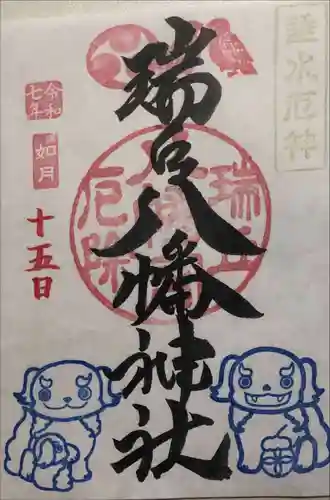 垂水厄神
瑞丘八幡神社
瑞丘
八幡
厄除
令和
七年
如月
十五日